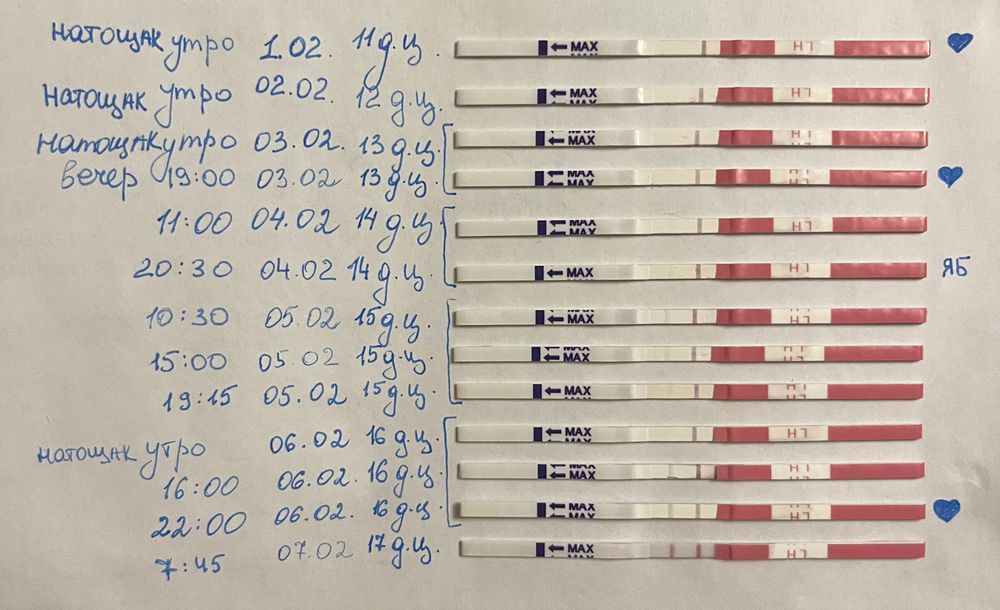 натощак утро 1.02. 11 д.ц. ← MAX LH
натощак утро 02.02. 12 д.ц. ← MAX LH
натощак утро 03.02. 13 д.ц. ← MAX LH
вечер 19:00 03.02 13 д.ц. ← MAX LH
11:00 04.02 14 д.ц. ← MAX LH
20:30 04.02 14 д.ц. ← MAX LH ЯБ
10:30 05.02 15 д.ц. ← MAX LH
15:00 05.02 15 д.ц. ← MAX LH
19:15 05.02 15 д.ц. ← MAX LH
натощак утро 06.02 16 д.ц. ← MAX LH
16:00 06.02. 16 д.ц. ← MAX LH
22:00 06.02. 16 д.ц. ← MAX LH
7:45 07.02 17 д.ц. ← MAX LH